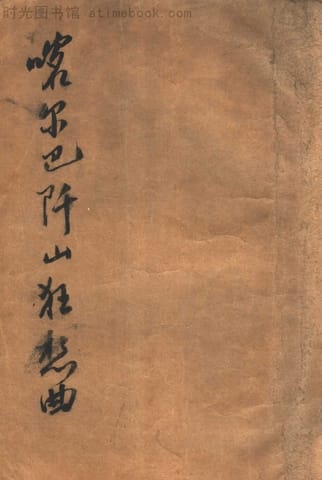 时光图书馆 atimebook.com
喀尔巴阡山狂想曲